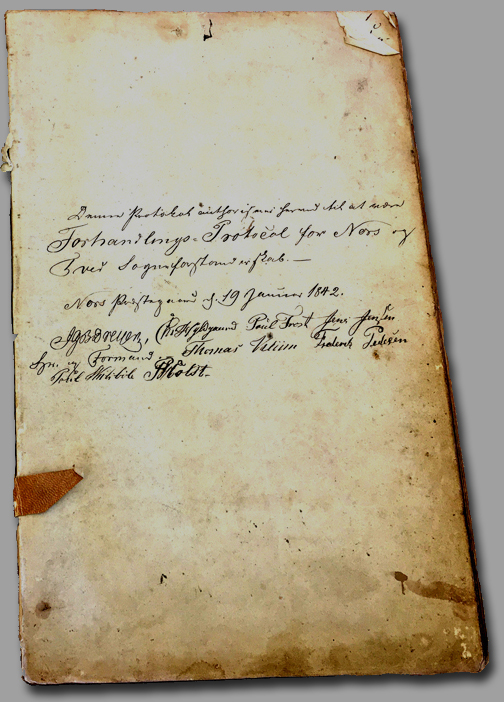 Denne Protokol authoriseres herved til at være
Forhandlings-Protocol for Nors og
Tved Sogneforstanderskab. —
Nors Præstegaard d. 19 Januar 1842.
Poul Frost Jens Jensen
Formand. Thomas Frederik Pedersen
Poul Holst.